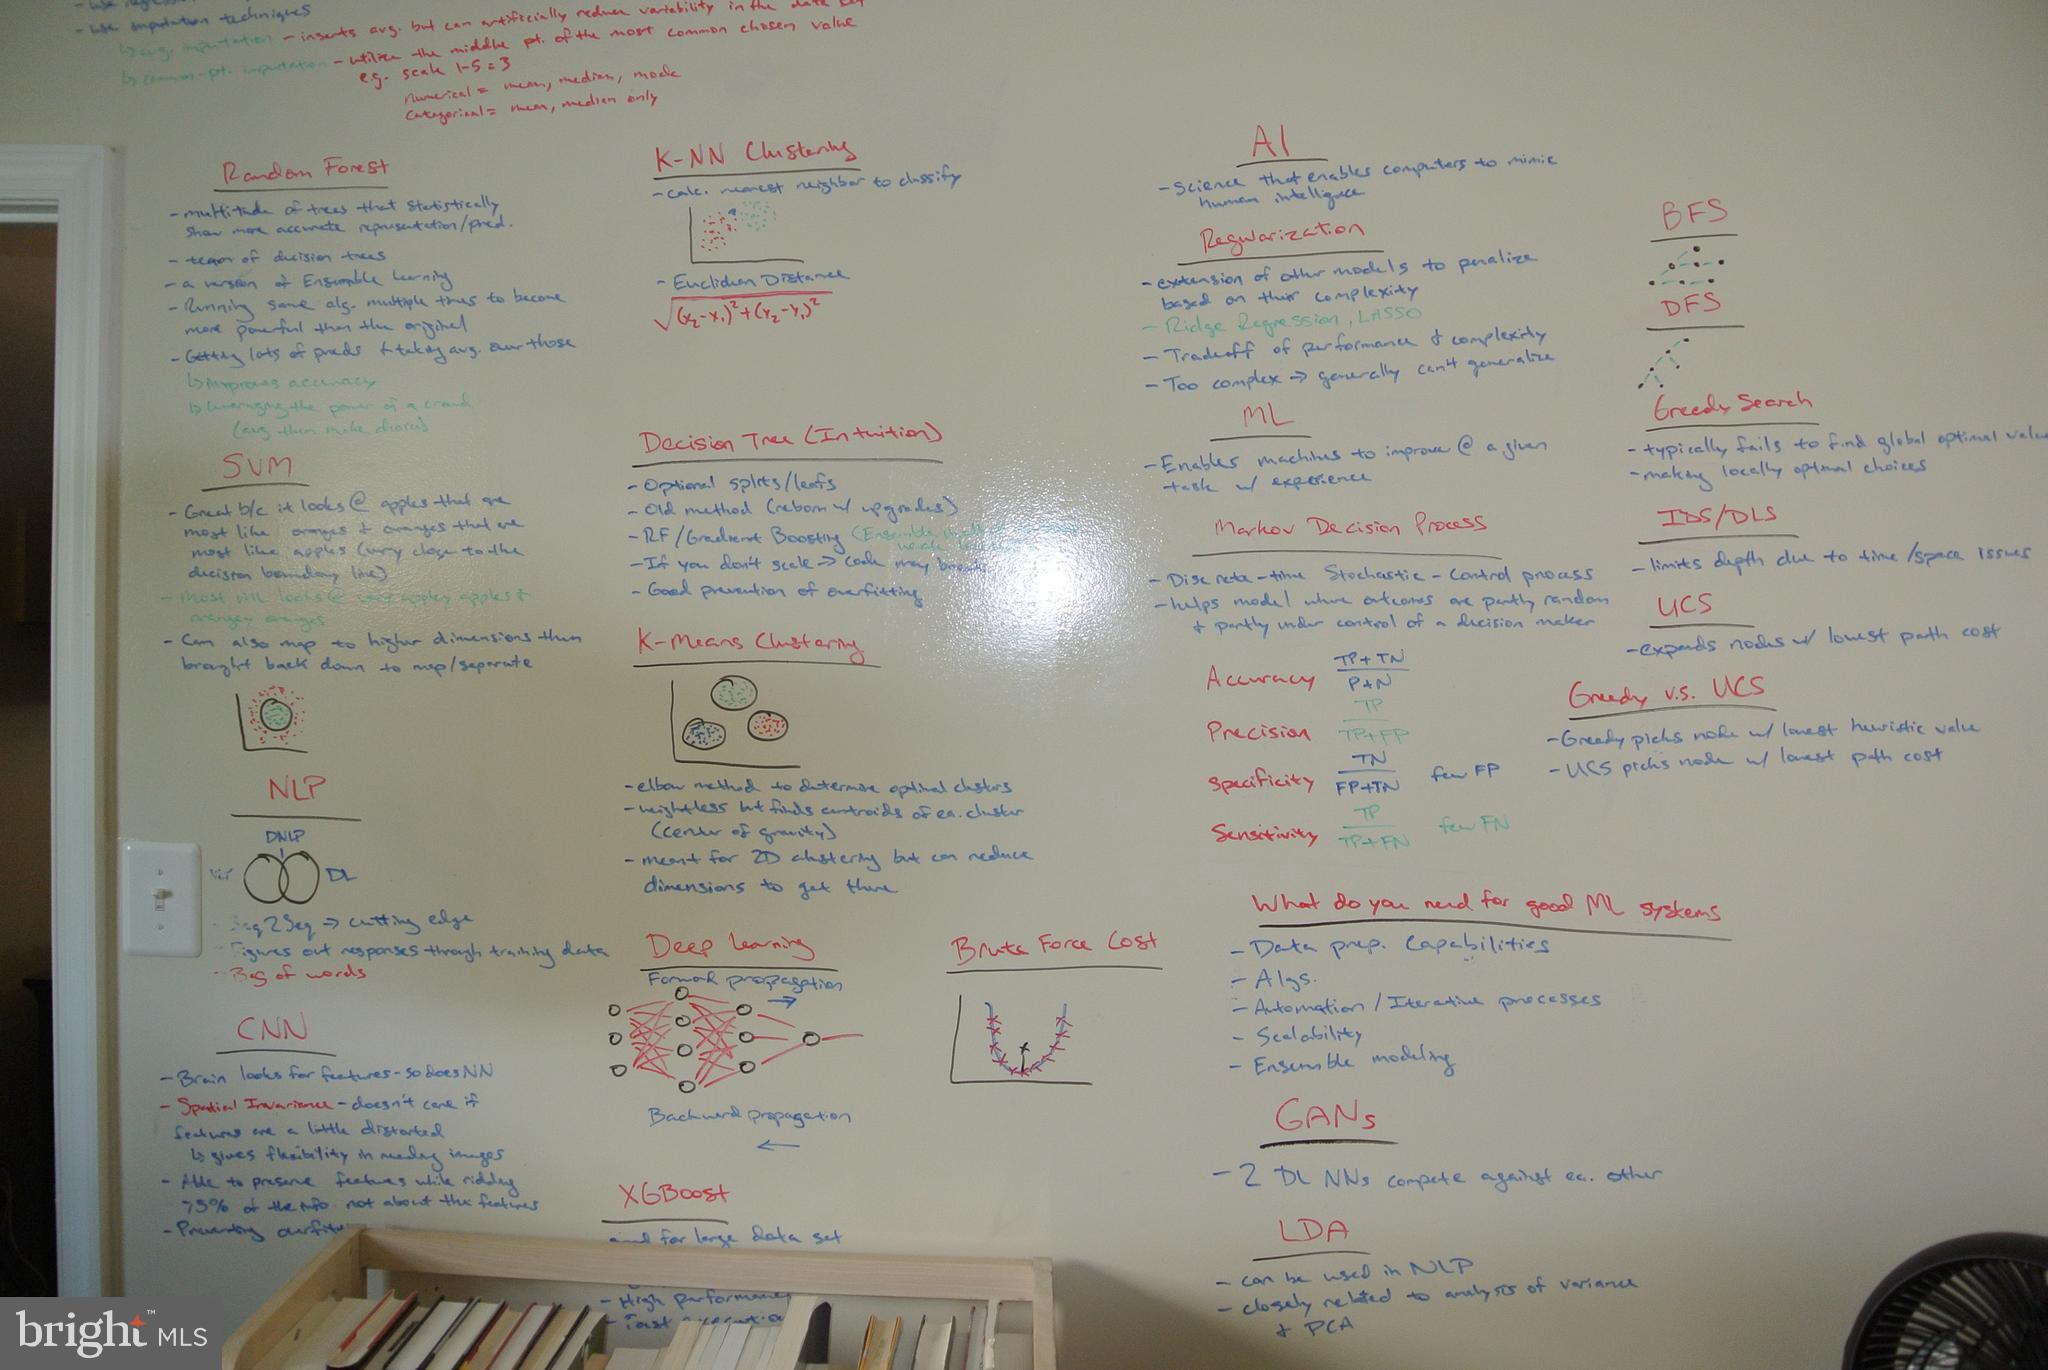 - use imputation techniques
↳ avg. imputation - inserts avg. but can artificially reduce variability in the data set
↳ common-pt. imputation - utilize the middle pt. of the most common chosen value
e.g. scale 1-5 = 3
numerical = mean, median, mode
categorical = mean, median only
Random Forest
- multitude of trees that statistically
show more accurate representation/pred.
- team of decision trees
- a version of Ensemble Learning
- Running same alg. multiple times to become
more powerful than the original
- Getting lots of preds & taking avg. over those
↳ improves accuracy
↳ leveraging the power of a crowd
(avg. then make choices)
SVM
- Great b/c it looks @ apples that are
most like oranges & oranges that are
most like apples (very close to the
decision boundary line)
- Most ML looks @ very appley apples &
orangey oranges
- Can also map to higher dimensions then
brought back down to map/separate
NLP
DNLP
NLP DL
Seq2Seq → cutting edge
Figures out responses through training data
- Bag of words
CNN
- Brain looks for features - so does NN
- Spatial Invariance - doesn't care if
features are a little distorted
↳ gives flexibility in reading images
- Able to preserve features while ridding
75% of the info not about the features
- Preventing overfitt
K-NN Clustering
- calc. nearest neighbor to classify
- Euclidean Distance
√(x₂-x₁)²+(y₂-y₁)²
Decision Tree (Intuition)
- Optional splits/leafs
- Old method (reborn w/ upgrades)
- RF/Gradient Boosting (Ensemble
- If you don't scale → code may break
- Good prevention of overfitting
K-Means Clustering
- elbow method to determine optimal clusters
- weightless but finds centroids of ea. cluster
(center of gravity)
- meant for 2D clustering but can reduce
dimensions to get there
Deep Learning
Forward propagation
→
Backward propagation
←
Brute Force Cost
XGBoost
for large data set
- High performance
- Fast execution
AI
- Science that enables computers to mimic
human intelligence
Regularization
- extension of other models to penalize
based on their complexity
- Ridge Regression, LASSO
- Tradeoff of performance & complexity
- Too complex → generally can't generalize
ML
- Enables machines to improve @ a given
task w/ experience
Markov Decision Process
- Discrete-time Stochastic-Control process
- helps model where outcomes are partly random
& partly under control of a decision maker
Accuracy TP+TN / P+N
Precision TP / TP+FP
Specificity TN / FP+TN few FP
Sensitivity TP / TP+FN few FN
What do you need for good ML systems
- Data prep. Capabilities
- Algs.
- Automation/Iterative processes
- Scalability
- Ensemble modeling
GANs
- 2 DL NNs compete against ea. other
LDA
- can be used in NLP
- closely related to analysis of variance
& PCA
BFS
DFS
Greedy Search
- typically fails to find global optimal value
- making locally optimal choices
IDS/DLS
- limits depth due to time/space issues
UCS
- expands nodes w/ lowest path cost
Greedy v.s. UCS
- Greedy picks node w/ lowest heuristic value
- UCS picks node w/ lowest path cost
bright™ MLS